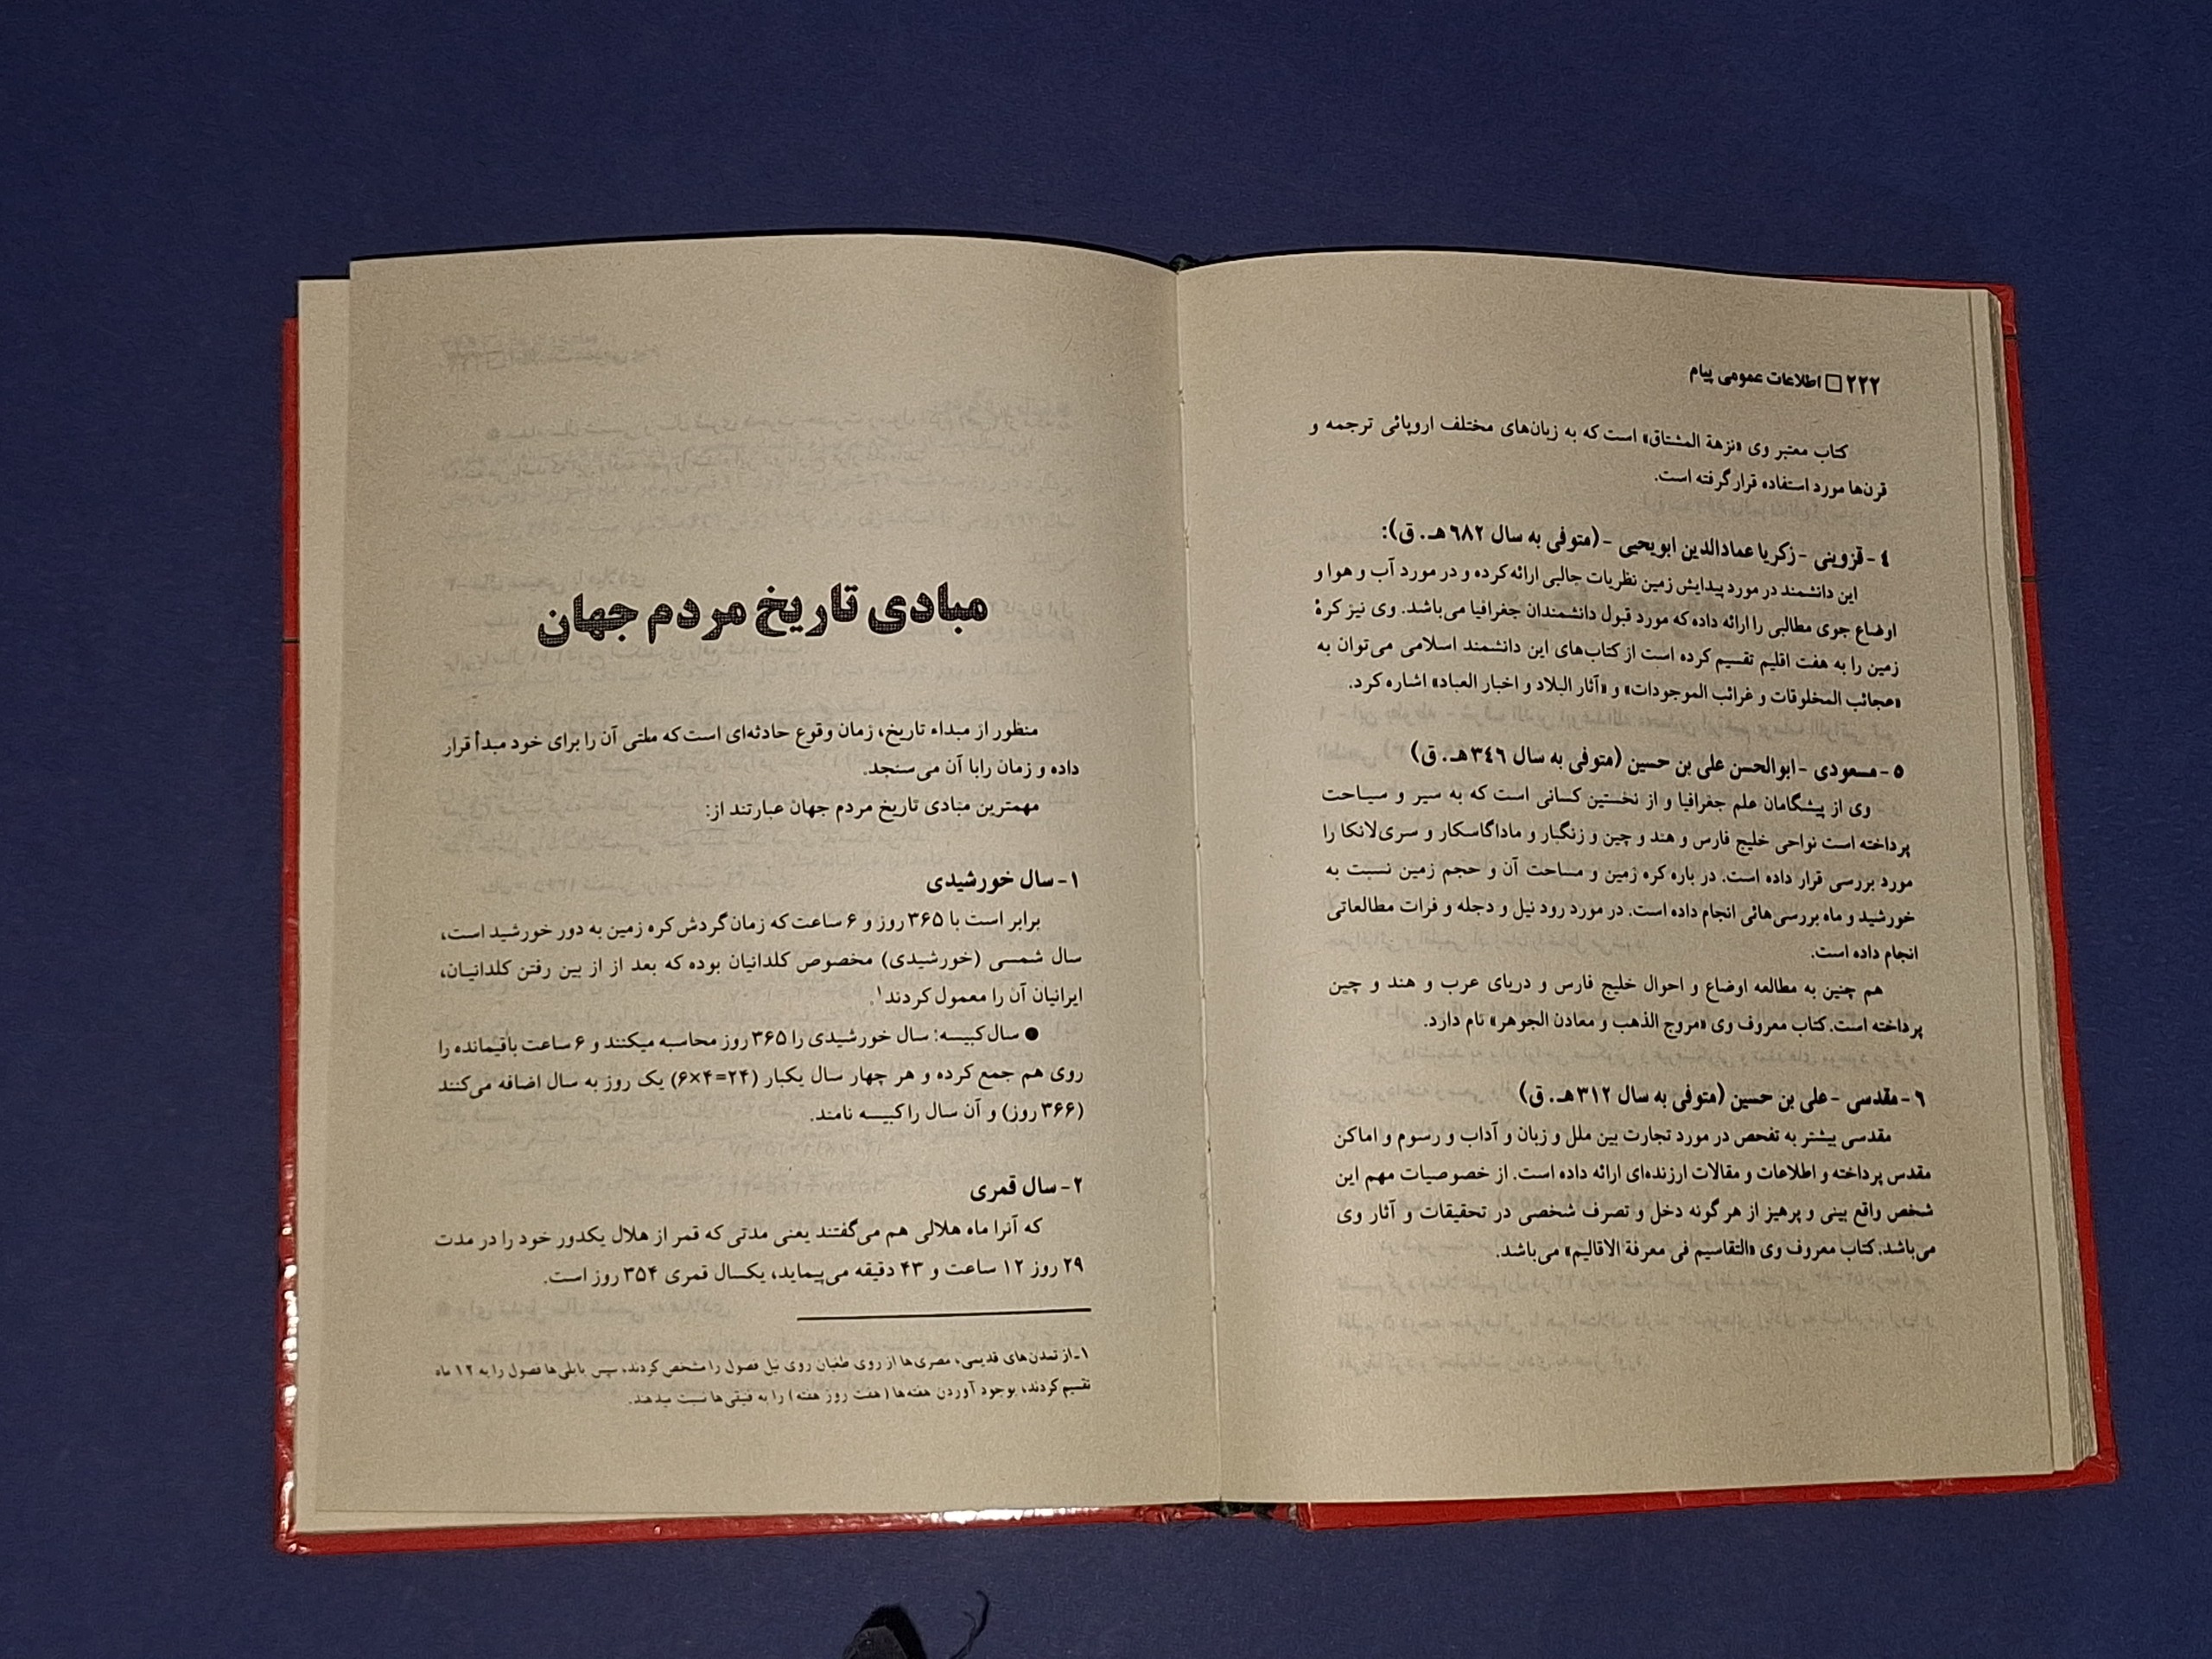 ۲۲۲ □ اطلاعات عمومی پیام
کتاب معتبر وی «نزهة المشتاق» است که به زبان‌های مختلف اروپائی ترجمه و
قرن‌ها مورد استفاده قرار گرفته است.
٤- قزوینی - زکریا عمادالدین ابویحیی - (متوفی به سال ٦٨٢ هـ. ق):
این دانشمند در مورد پیدایش زمین نظریات جالبی ارائه کرده و در مورد آب و هوا و
اوضاع جوی مطالبی را ارائه داده که مورد قبول دانشمندان جغرافیا می‌باشد. وی نیز کرۀ
زمین را به هفت اقلیم تقسیم کرده است از کتاب‌های این دانشمند اسلامی می‌توان به
«عجائب المخلوقات و غرائب الموجودات» و «آثار البلاد و اخبار العباد» اشاره کرد.
٥- مسعودی - ابوالحسن علی بن حسین (متوفی به سال ٣٤٦ هـ. ق)
وی از پیشگامان علم جغرافیا و از نخستین کسانی است که به سیر و سیـاحت
پرداخته است نواحی خلیج فارس و هند و چین و زنگبار و ماداگاسکار و سری‌لانکا را
مورد بررسی قرار داده است. در باره کره زمین و مساحت آن و حجم زمین نسبت به
خورشید و ماه بررسی‌هائی انجام داده است. در مورد رود نیل و دجله و فرات مطالعاتی
انجام داده است.
هم چنین به مطالعه اوضاع و احوال خلیج فارس و دریای عرب و هند و چین
پرداخته است. کتاب معروف وی «مروج الذهب و معادن الجوهر» نام دارد.
٦- مقدسی - علی بن حسین (متوفی به سال ٣١٢ هـ. ق)
مقدسی بیشتر به تفحص در مورد تجارت بین ملل و زبان و آداب و رسوم و اماکن
مقدس پرداخته و اطلاعات و مقالات ارزنده‌ای ارائه داده است. از خصوصیات مهم این
شخص واقع بینی و پرهیز از هر گونه دخل و تصرف شخصی در تحقیقات و آثار وی
می‌باشد. کتاب معروف وی «التقاسیم فی معرفة الاقالیم» می‌باشد.
مبادی تاریخ مردم جهان
منظور از مبداء تاریخ، زمان وقوع حادثه‌ای است که ملتی آن را برای خود مبدأ قرار
داده و زمان رابا آن می‌سنجد.
مهمترین مبادی تاریخ مردم جهان عبارتند از:
۱- سال خورشیدی
برابر است با ۳۶۵ روز و ۶ ساعت که زمان گردش کره زمین به دور خورشید است،
سال شمسی (خورشیدی) مخصوص کلدانیان بوده که بعد از از بین رفتن کلدانیـان،
ایرانیان آن را معمول کردند۱.
● سال کبیسه: سال خورشیدی را ۳۶۵ روز محاسبه میکنند و ۶ ساعت باقیمانده را
روی هم جمع کرده و هر چهار سال یکبار (۲۴=۴×۶) یک روز به سال اضافه می‌کنند
(۳۶۶ روز) و آن سال را کبیسه نامند.
۲- سال قمری
که آنرا ماه هلالی هم می‌گفتند یعنی مدتی که قمر از هلال یکدور خود را در مدت
۲۹ روز ۱۲ ساعت و ۴۳ دقیقه می‌پیماید، یکسال قمری ۳۵۴ روز است.
۱ـ از تمدن‌های قدیمی، مصری‌ها از روی طغیان روی نیل فصول را مشخص کردند، سپس بابلی‌ها فصول را به ۱۲ ماه
تقسیم کردند، بوجود آوردن هفته‌ها (هفت روز هفته) را به فنیقی‌ها نسبت میدهند.